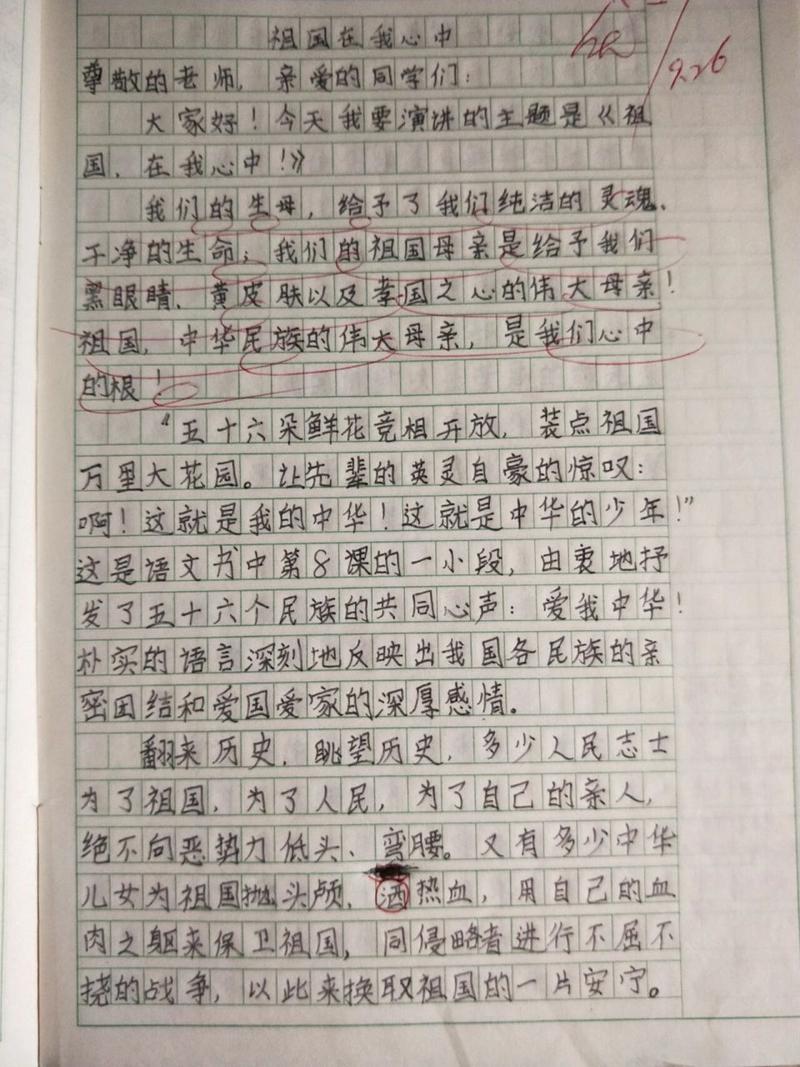 祖国在我心中
9.26
尊敬的老师，亲爱的同学们：
大家好！今天我要演讲的主题是《祖
国，在我心中！》
我们的生母，给予了我们纯洁的灵魂、
干净的生命；我们的祖国母亲是给予我们
黑眼睛、黄皮肤以及孝国之心的伟大母亲！
祖国，中华民族的伟大母亲，是我们心中
的根！
“五十六朵鲜花竞相开放，装点祖国
万里大花园。让先辈的英灵自豪的惊叹：
啊！这就是我的中华！这就是中华的少年！”
这是语文书中第8课的一小段，由衷地抒
发了五十六个民族的共同心声：爱我中华！
朴实的语言深刻地反映出我国各民族的亲
密团结和爱国爱家的深厚感情。
翻来历史，眺望历史，多少人民志士
为了祖国，为了人民，为了自己的亲人，
绝不向恶势力低头、弯腰。又有多少中华
儿女为祖国抛头颅、洒热血，用自己的血
肉之躯来保卫祖国，同侵略者进行不屈不
挠的战争，以此来换取祖国的一片安宁。